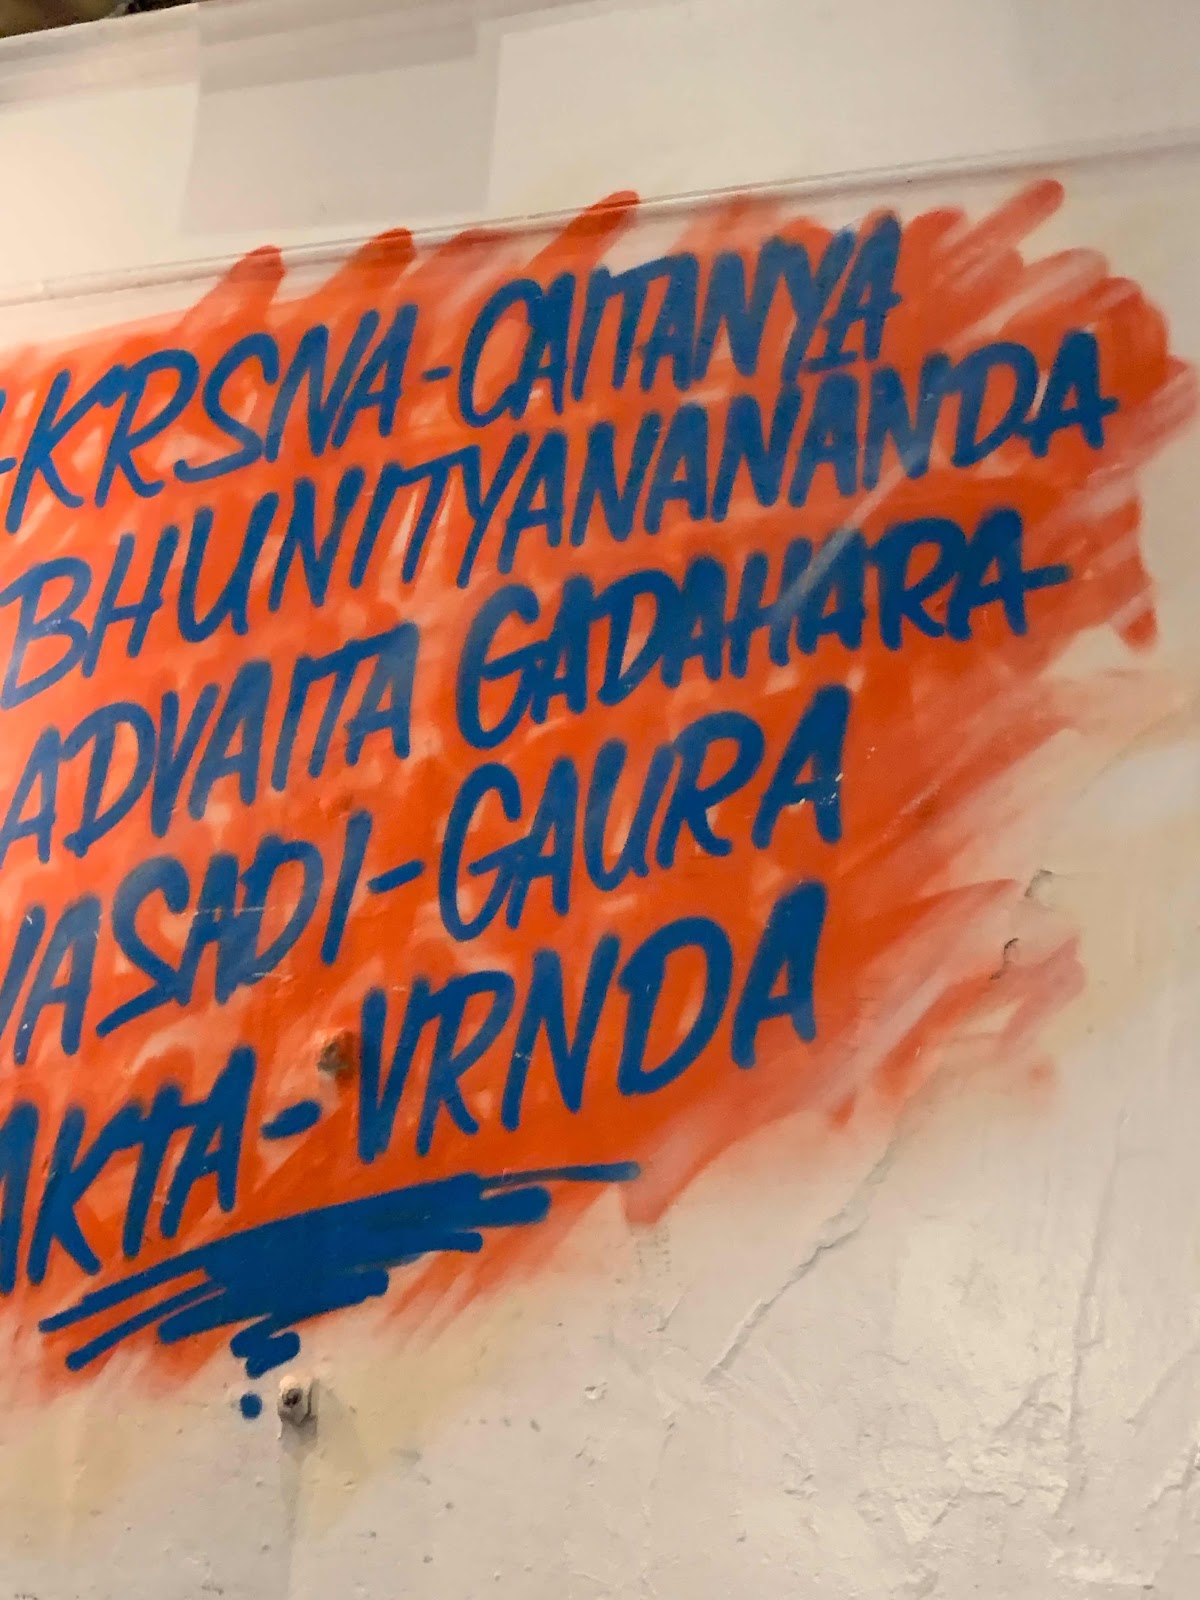 -KRSNA-CAITANYA
BHUNITYANANANDA
ADVAITA GADAHARA-
VASADI-GAURA
AKTA-VRNDA